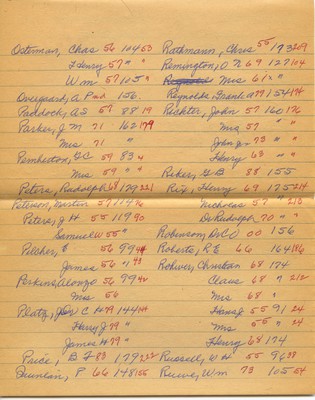 Osterman, Chas 56 104 53
Henry 57 " "
Wm 57 105 "
Overgard, A P 156
Paddock, A S 57 88 19
Parker, J M 71 162 179
Mrs 71 " "
Pemberton, G C 59 83 4
Mrs 59 " "
Peters, Rudolph 68 179 221
Peterson, 57 114 76
Peters, J H 55 119 90
Samuel W 55 "
Pelcher, E 56 99 44
James 56 " 43
Perkins, Alonzo 56 99 42
Mrs 56
Platz, C H 79 144 144
Henry J 79 " "
James H 79 " "
Price, B F 83 179 222
P 66 148 155
Rathmann, Chris 55 193 219
Remington, O N 69 127 104
Mrs 61 " "
Reynolds, Frank 79 154 174
Richter, John 57 160 176
Mrs 57 " "
John Jr 73 " "
Henry 63 " "
Riker, G B 88 155
Rix, Henry 69 175 214
Nicholas 57 " 213
Dr Rudolph 70 " "
Robinson, 00 156
Roberts, R E 66 164 186
Rohwer, Christian 68 174
Claus 68 " 212
Mrs 68 "
Hans J 55 91 24
Mrs 55 " 24
Henry 68 174
Russell, W H 55 96 38
Ruwe, Wm 73 105 54